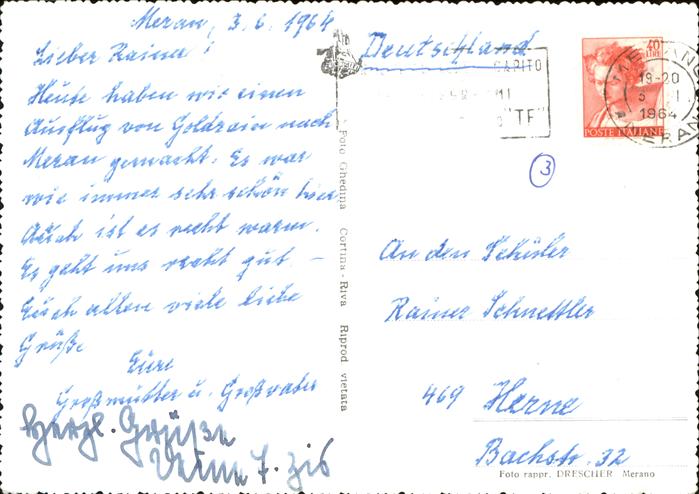 Meran, 3.6.1964
Lieber Rainer!
Heute haben wir einen
Ausflug von Goldrain nach
Meran gemacht. Es war
wie immer sehr schön hier
Auch ist es recht warm.
Es geht uns recht gut –
Euch allen viele liebe
Grüße
Eure
Großmutter u. Großvater
Herzl. Grüße
Foto Ghedina Cortina - Riva Riprod vietata
Deutschland
CAPITO
"TF"
40
LIRE
POSTE ITALIANE
MERANO
19-20
1964
MERANO
3
An den Schüler
Rainer Schnettler
469 Herne
Bachstr. 32
Foto rappr. DRESCHER Merano